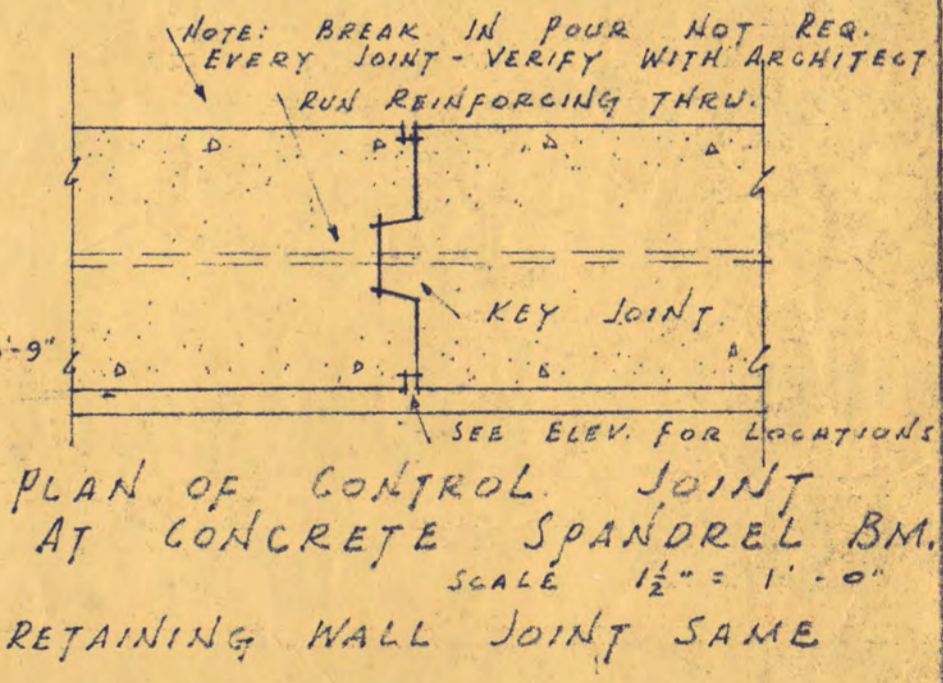 NOTE: BREAK IN POUR NOT REQ.
EVERY JOINT - VERIFY WITH ARCHITECT
RUN REINFORCING THRU.
KEY JOINT.
-9"
SEE ELEV. FOR LOCATIONS
PLAN OF CONTROL JOINT
AT CONCRETE SPANDREL BM.
SCALE 1½" = 1'-0"
RETAINING WALL JOINT SAME